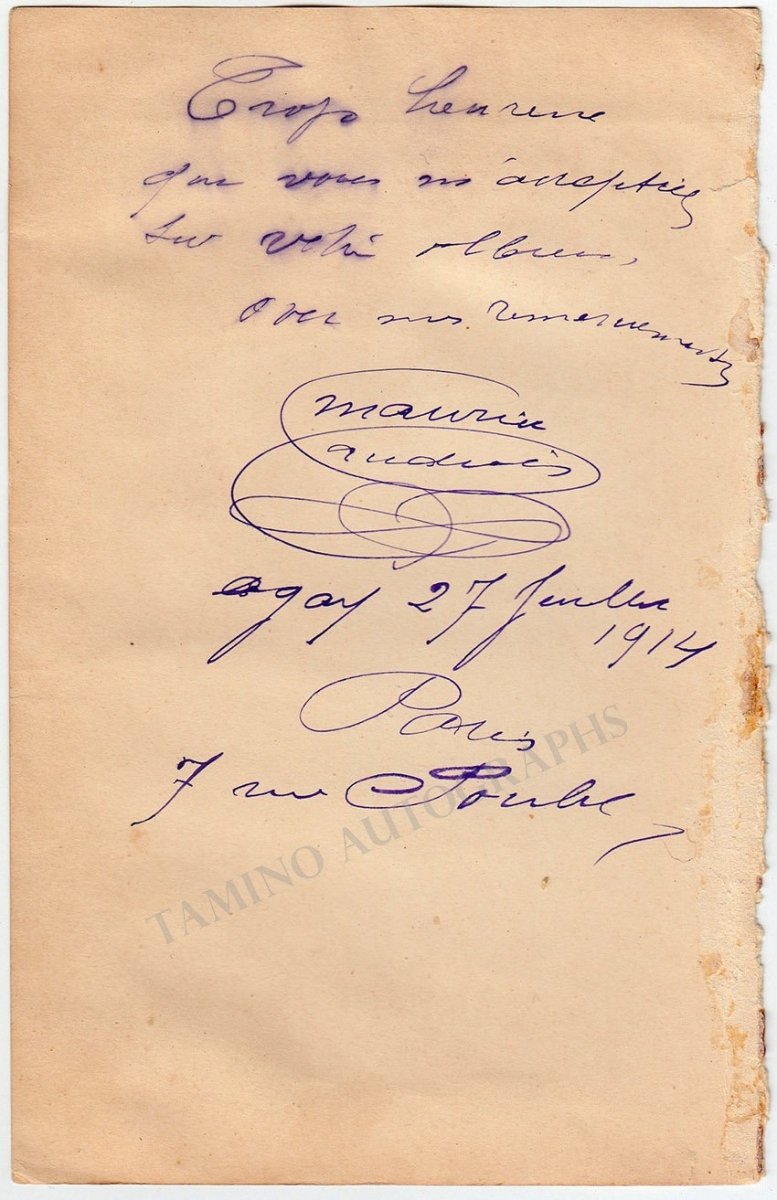 Trop heureux
que vous m'acceptiez
sur votre album,
avec mes remerciements
Maurice
Andreis
agay 27 Juillet
1914
Paris
7 rue
TAMINO AUTOGRAPHS